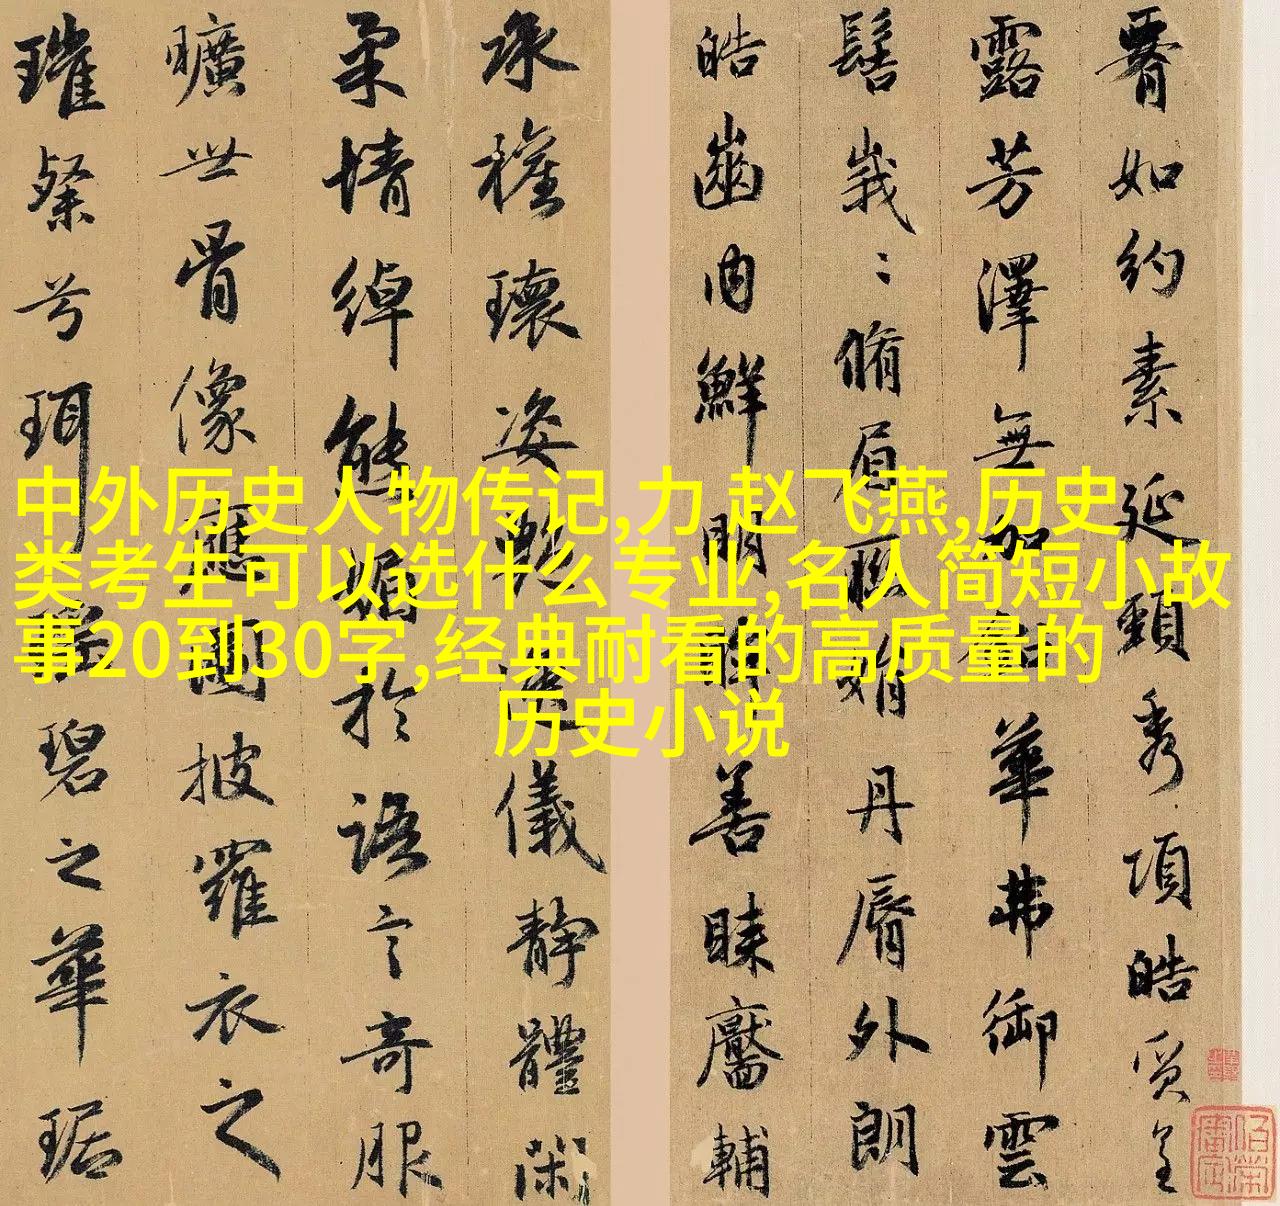 腰如約素延頸秀項皓質呈
露芳澤無加鉛華弗御雲
髻峩々脩眉聯娟丹脣外朗
皓齒内鮮明眸善睞靨輔
承權瓌姿艷逸儀靜體閑
柔情綽態媚於語言奇服
曠世骨像應圖披羅衣之
璀粲兮珥瑤碧之華琚
中外历史人物传记,力 赵飞燕,历史
类考生可以选什么专业,名人简短小故
事20到30字,经典耐看的高质量的
历史小说